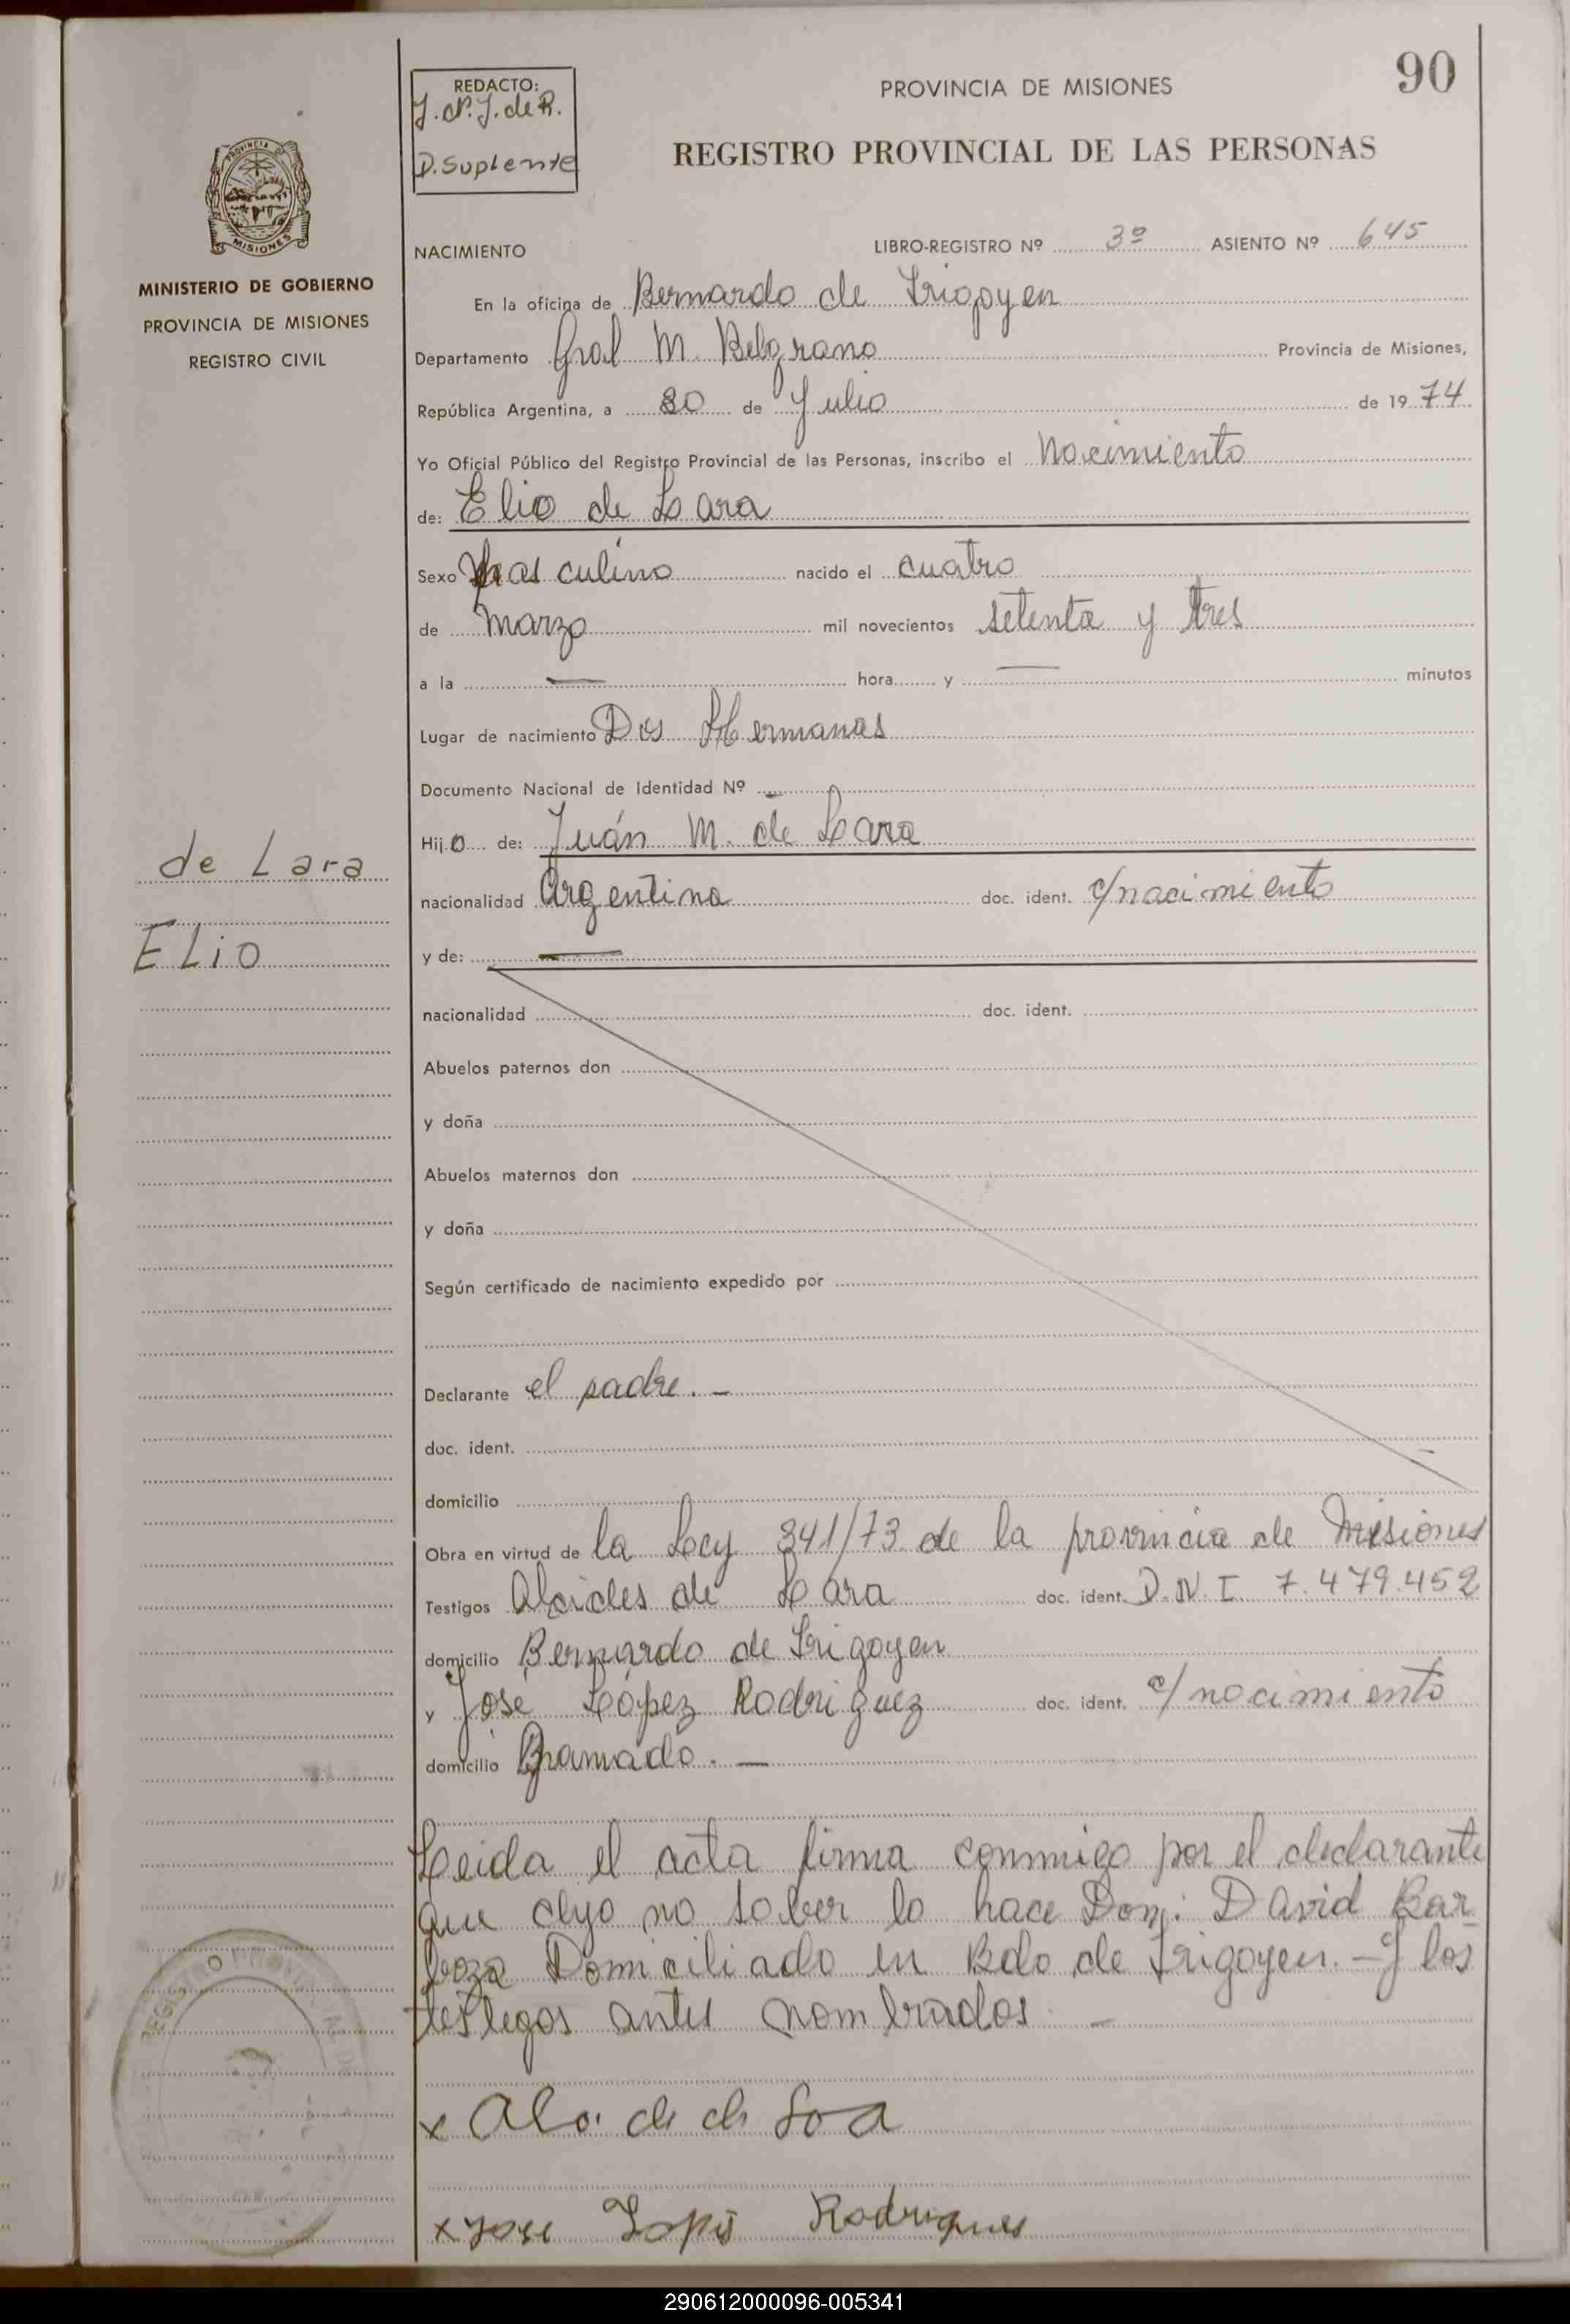 90
REDACTO:
D. Suplente
PROVINCIA DE MISIONES
REGISTRO PROVINCIAL DE LAS PERSONAS
MISIONES
MINISTERIO DE GOBIERNO
PROVINCIA DE MISIONES
REGISTRO CIVIL
NACIMIENTO LIBRO-REGISTRO Nº 3º ASIENTO Nº 645
En la oficina de Bernardo de Irigoyen
Departamento Gral M. Belgrano Provincia de Misiones,
República Argentina, a 30 de Julio de 1974
Yo Oficial Público del Registro Provincial de las Personas, inscribo el Nacimiento
de: Elio de Lara
Sexo Masculino nacido el cuatro
de Marzo mil novecientos setenta y tres
a la — hora y — minutos
Lugar de nacimiento Dos Hermanas
Documento Nacional de Identidad Nº —
Hijo de: Juán M. de Lara
nacionalidad Argentina doc. ident. c/nacimiento
y de: —
de Lara
ELio
nacionalidad doc. ident.
Abuelos paternos don
y doña
Abuelos maternos don
y doña
Según certificado de nacimiento expedido por
Declarante el padre. —
doc. ident.
domicilio
Obra en virtud de la Ley 341/73 de la provincia de Misiones
Testigos Alcides de Lara doc. ident. D.N.I. 7.479.452
domicilio Bernardo de Irigoyen
y José López Rodriguez doc. ident. c/nocimiento
domicilio Gramado. —
Leida el acta firma conmigo por el declarante
que dijo no saber lo hace Don: David Bar-
boza Domiciliado en Bdo de Irigoyen. — y los
testigos antes nombrados —
x Jose Lopis Rodrigues
290612000096-005341